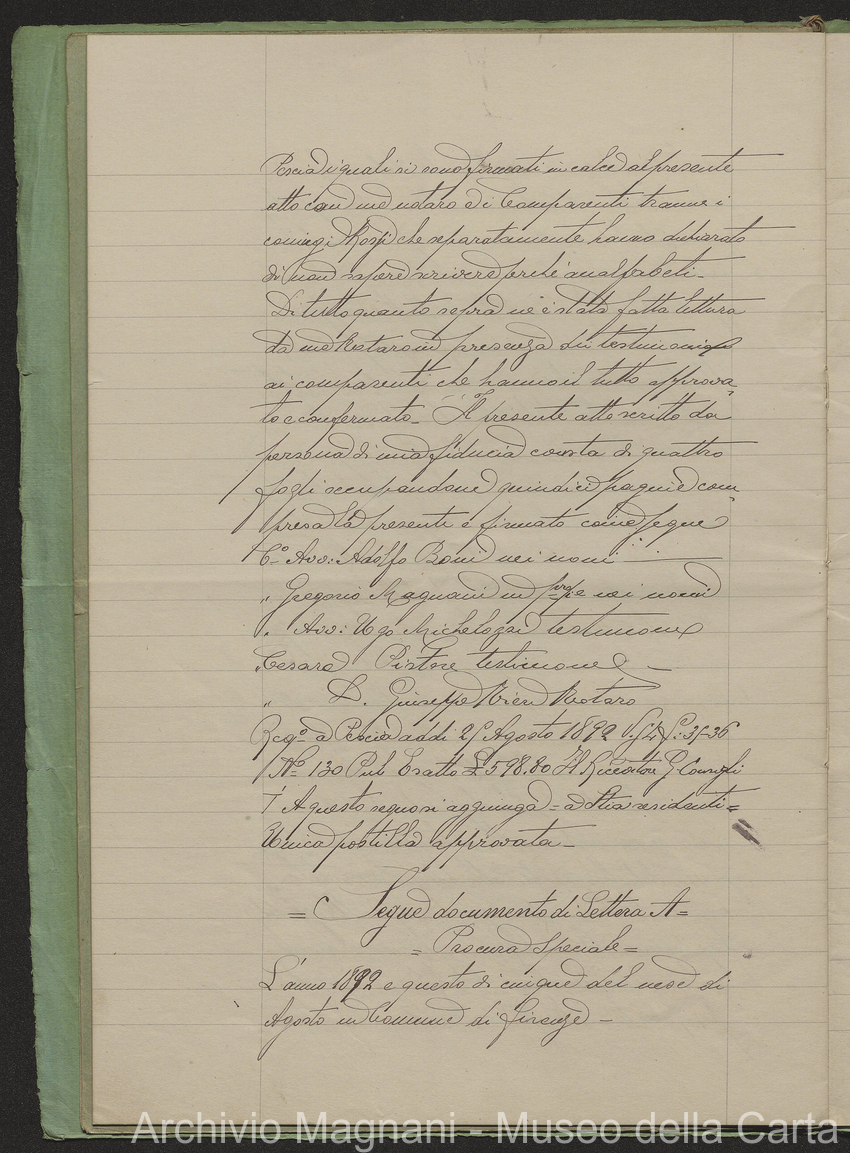 Pescia i quali si sono firmati in calce al presente
atto con me notaro e di Comparenti tranne i
coniugi Rossi che separatamente hanno dichiarato
di non sapere scrivere perché analfabeti_
Di tutto quanto sopra ne è stata fatta lettura
da me Notaro in presenza dei testimoni
ai comparenti che hanno il tutto approva
to e confermato_ Il presente atto scritto da
persona di mia fiducia consta di quattro
fogli occupandone quindici pagine com
presa la presente e firmato come segue
C.° Avv: Adolfo Boni nei nomi
" Gregorio Magnani in prop.e nei nomi
" Avv: Ugo Michelozzi testimone
" Cesare Pistore testimone _
" D. Giuseppe Nieri Notaro
Reg.° a Pescia addì 25 Agosto 1892 V. 54 f.° 35-36
N.° 130 Pub Esatto £ 598.80 Il Ricevitore G Consigli
A questo segno si aggiunga = a Stia residenti =
Unica postilla approvata_
= Segue documento di Lettera A =
= Procura Speciale =
L'anno 1892 e questo dì cinque del mese di
Agosto in Comune di Firenze _
Archivio Magnani - Museo della Carta